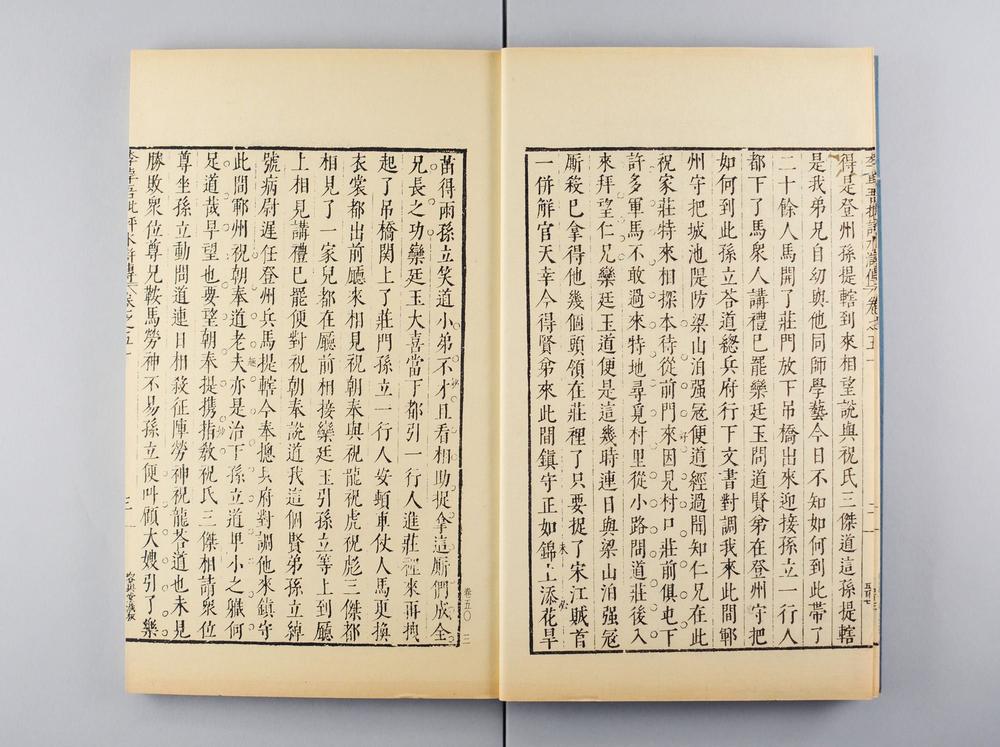 李卓吾批評水滸傳 卷之五十
得是登州孫提轄到來相望說與祝氏三傑道這孫提轄
是我弟兄自幼與他同師學藝今日不知如何到此帶了
二十餘人馬開了莊門放下吊橋出來迎接孫立一行人
都下了馬衆人講禮已罷欒廷玉問道賢弟在登州守把
如何到此孫立荅道總兵府行下文書對調我來此間鄆
州守把城池隄防梁山泊强寇便道經過聞知仁兄在此
祝家莊特來相探本待從前門來因見村口莊前俱屯下
許多軍馬不敢過來特地尋覓村里從小路問道莊後入
來拜望仁兄欒廷玉道便是這幾時連日與梁山泊强寇
厮殺已拿得他幾個頭領在莊裡了只要捉了宋江賊首
一併解官天幸今得賢弟來此間鎮守正如錦上添花旱
苗得雨孫立笑道小弟不才且看相助捉拿這厮們成全
兄長之功欒廷玉大喜當下都引一行人進莊裡來再拽
起了吊橋關上了莊門孫立一行人安頓車仗人馬更換
衣裳都出前廳來相見祝朝奉與祝龍祝虎祝彪三傑都
相見了一家兒都在廳前相接欒廷玉引孫立等上到廳
上相見講禮已罷便對祝朝奉說道我這個賢弟孫立綽
號病尉遲任登州兵馬提轄今奉摠兵府對調他來鎮守
此間鄆州祝朝奉道老夫亦是治下孫立道卑小之職何
足道哉早望也要望朝奉提携指敎祝氏三傑相請衆位
尊坐孫立動問道連日相殺征陣勞神祝龍荅道也未見
勝敗衆位尊兄鞍馬勞神不易孫立便呌顧大嫂引了樂
李卓吾批評水滸傳 卷之五十
三
容與堂藏板
卷五〇 三